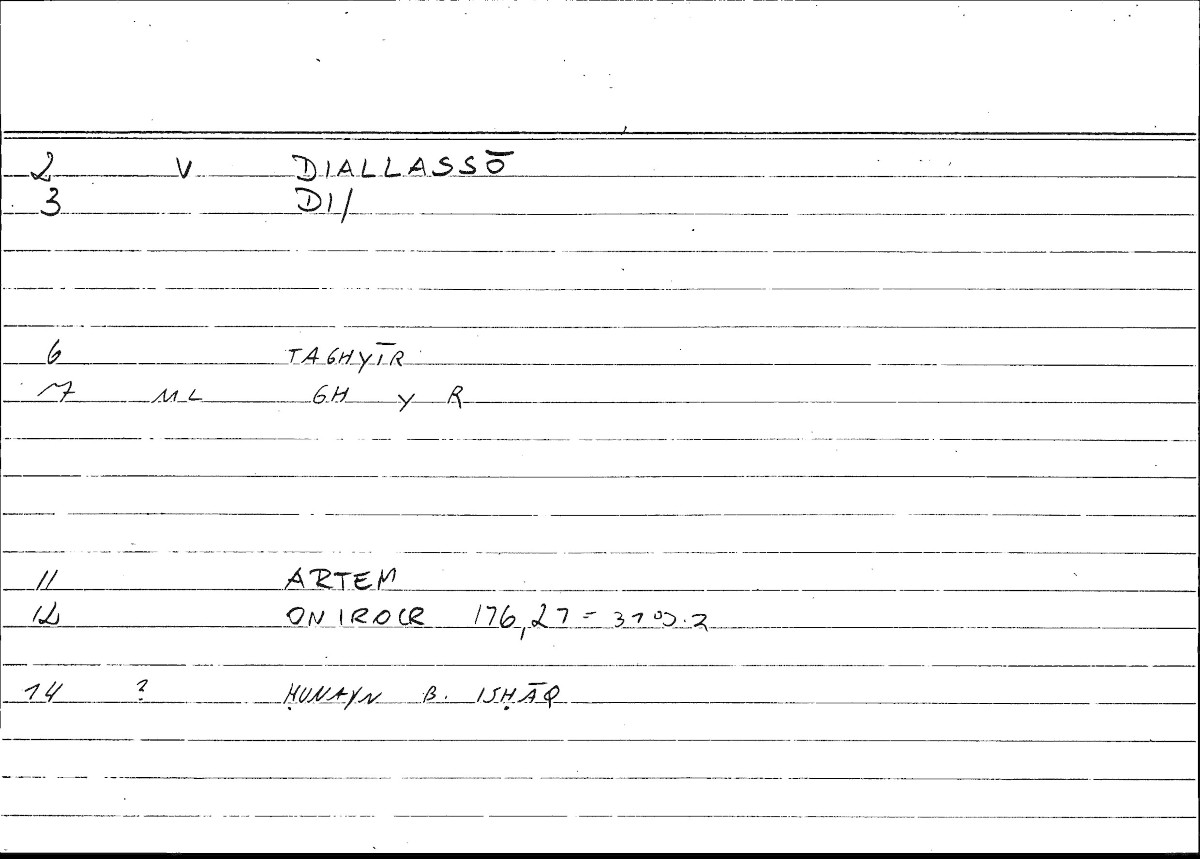 2 V DIALLASSŌ
3 DI/
6 TAGHYĪR
7 ML GH Y R
11 ARTEM
12 ONIROCR 176,27 =
14 ? ḤUNAYN B. ISḤĀQ